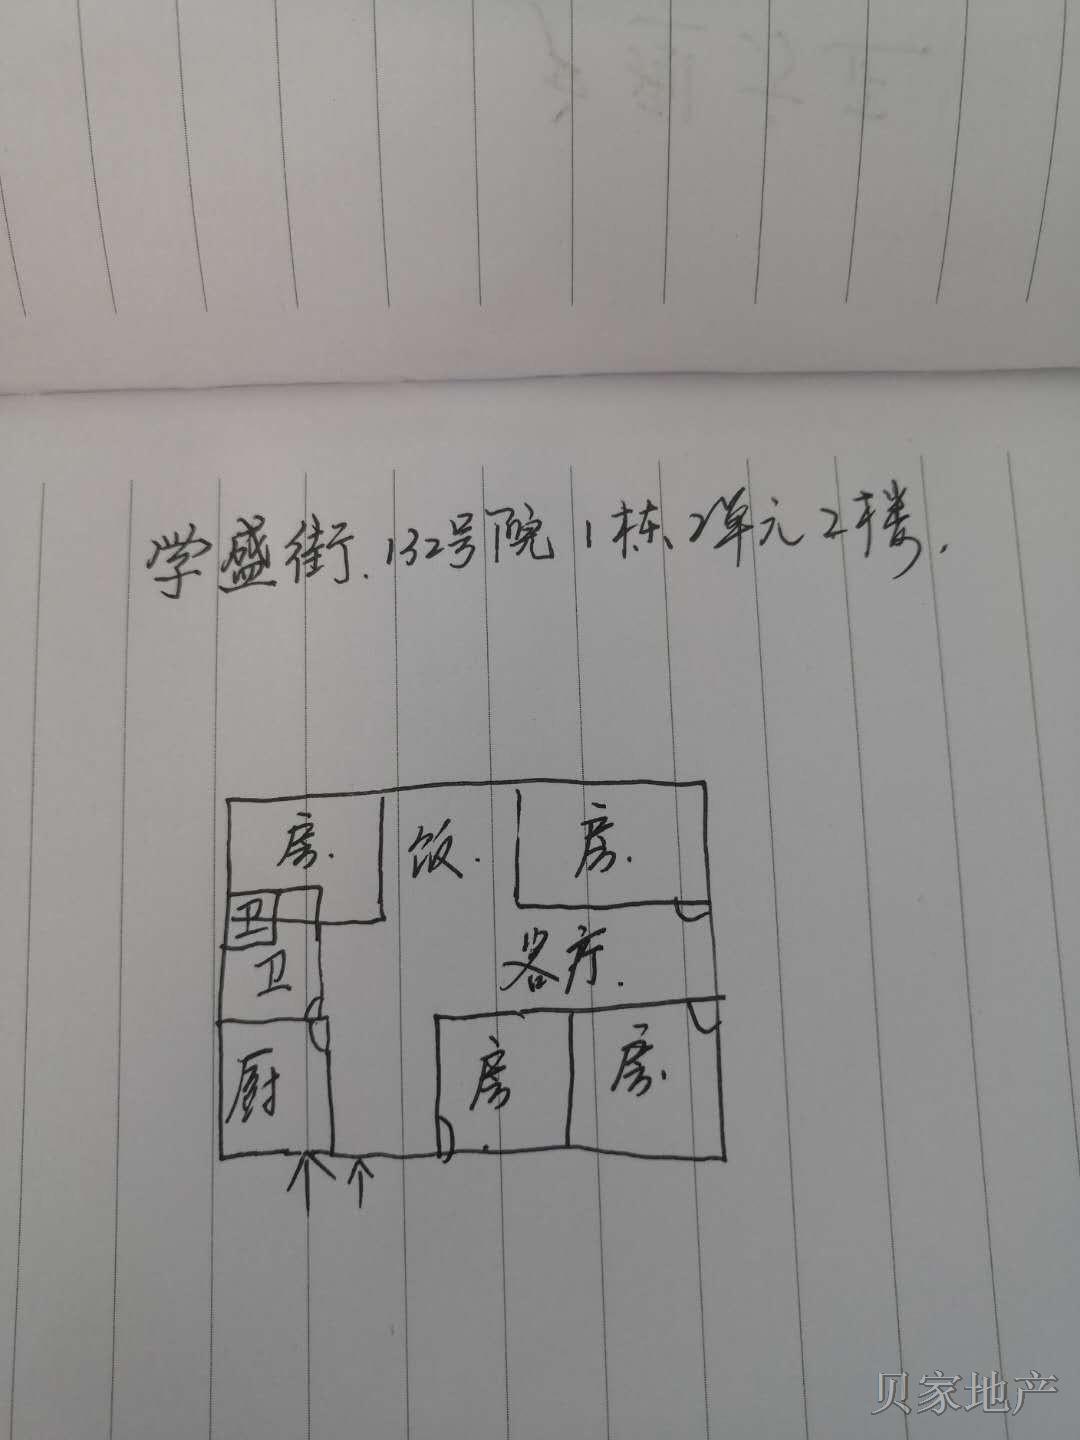 学盛街.132号院1栋2单元2楼.
房.
饭.
房.
卫
卫
客厅.
厨
房
房.
贝家地产